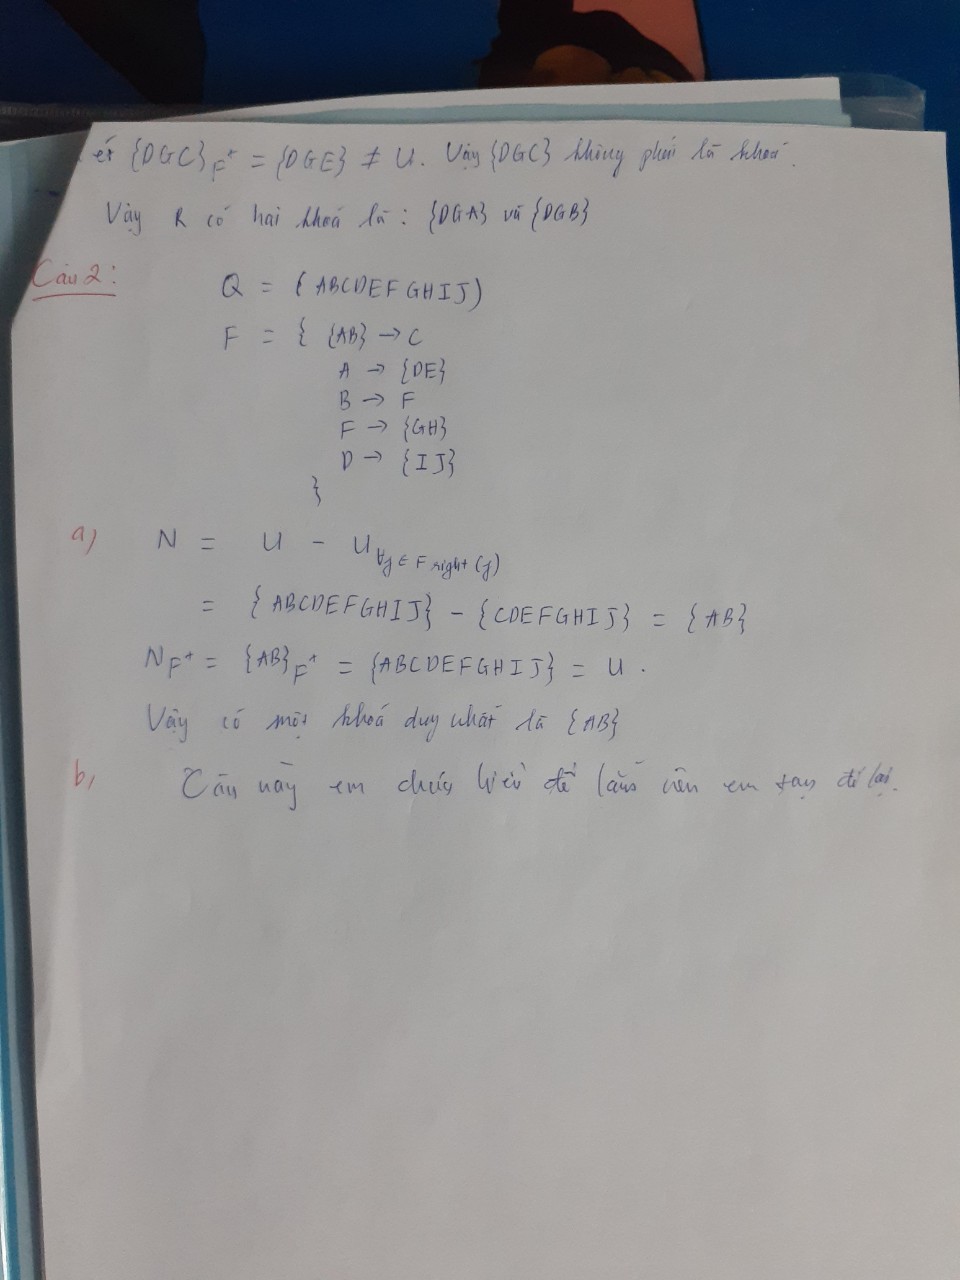 ét {DGC}F+ = {DGE} ≠ U. Vậy {DGC} không phải là khoá.
Vậy R có hai khoá là: {DGA} và {DGB}
Câu 2:
Q = (ABCDEFGHIJ)
F = { {AB} → C
A → {DE}
B → F
F → {GH}
D → {IJ}
}
a) N = U - U∀j ∈ F right (j)
= {ABCDEFGHIJ} - {CDEFGHIJ} = {AB}
NF+ = {AB}F+ = {ABCDEFGHIJ} = U.
Vậy có một khoá duy nhất là {AB}
b, Câu này em chưa hiểu đề lắm nên em để lại.